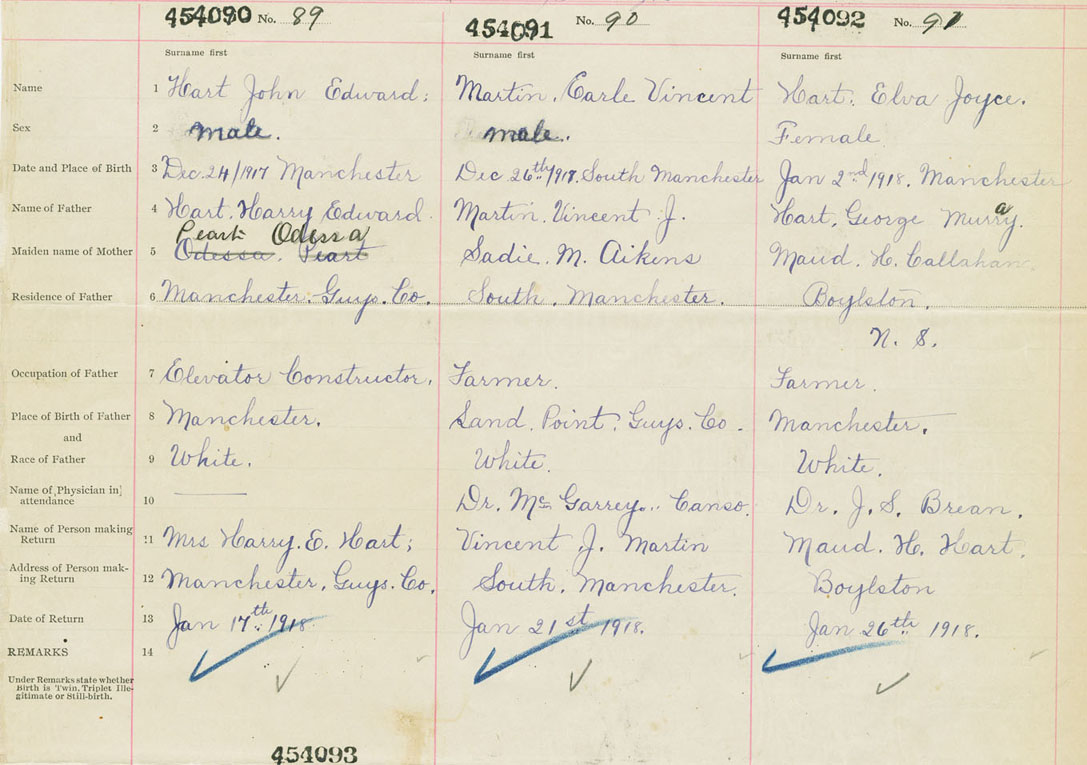 454090 No. 89 454091 No. 90 454092 No. 91
Surname first Surname first Surname first
Name 1 Hart John Edward; Martin, Earle Vincent Hart, Elva Joyce.
Sex 2 male. male. Female
Date and Place of Birth 3 Dec. 24/1917 Manchester Dec 26th/1917. South Manchester Jan 2nd 1918. Manchester
Name of Father 4 Hart, Harry Edward. Martin, Vincent J. Hart, George Murray.
Peart Odessa
Maiden name of Mother 5 Odessa, Peart Sadie. M. Aikens Maud. H. Callahan.
Residence of Father 6 Manchester, Guys. Co. South. Manchester. Boylston,
N. S.
Occupation of Father 7 Elevator Constructor. Farmer. Farmer.
Place of Birth of Father 8 Manchester. Sand. Point, Guys. Co. Manchester.
and
Race of Father 9 White. White. White.
Name of Physician in attendance 10 Dr. Mc Garrey, Canso. Dr. J. S. Brean.
Name of Person making Return 11 Mrs Harry. E. Hart; Vincent J. Martin Maud. H. Hart.
Address of Person mak-
ing Return 12 Manchester, Guys. Co. South. Manchester. Boylston
Date of Return 13 Jan 17th. 1918. Jan 21st 1918. Jan 26th 1918.
REMARKS 14
Under Remarks state whether
Birth is Twin, Triplet Ille-
gitimate or Still-birth.
454093